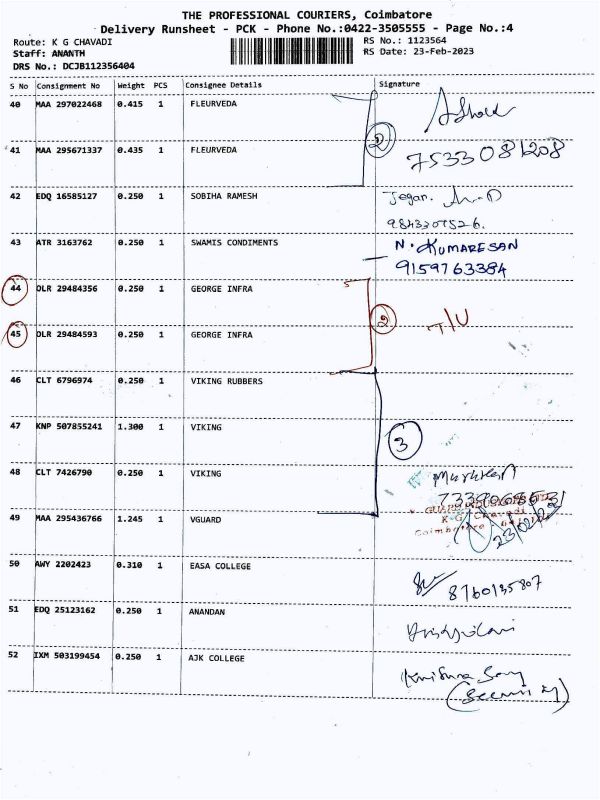 THE PROFESSIONAL COURIERS, Coimbatore
Delivery Runsheet - PCK - Phone No.:0422-3505555 - Page No.:4
Route: K G CHAVADI RS No.: 1123564
Staff: ANANTH RS Date: 23-Feb-2023
DRS No.: DCJB112356404
S No Consignment No Weight PCS Consignee Details Signature
40 MAA 297022468 0.415 1 FLEURVEDA Ashok
2
41 MAA 295671337 0.435 1 FLEURVEDA 7533081208
42 EDQ 16585127 0.250 1 SOBIHA RAMESH Jegan.
9843307526.
43 ATR 3163762 0.250 1 SWAMIS CONDIMENTS N. KUMARESAN
9159763384
44 DLR 29484356 0.250 1 GEORGE INFRA
2 T/U
45 DLR 29484593 0.250 1 GEORGE INFRA
46 CLT 6796974 0.250 1 VIKING RUBBERS
47 KNP 507855241 1.300 1 VIKING
3
48 CLT 7426790 0.250 1 VIKING Murukan
K.G. Chavadi
Coimbatore
23/02/23
49 MAA 295436766 1.245 1 VGUARD
50 AWY 2202423 0.310 1 EASA COLLEGE
8760135807
51 EDQ 25123162 0.250 1 ANANDAN
52 IXM 503199454 0.250 1 AJK COLLEGE Krishna Samy
(Security)